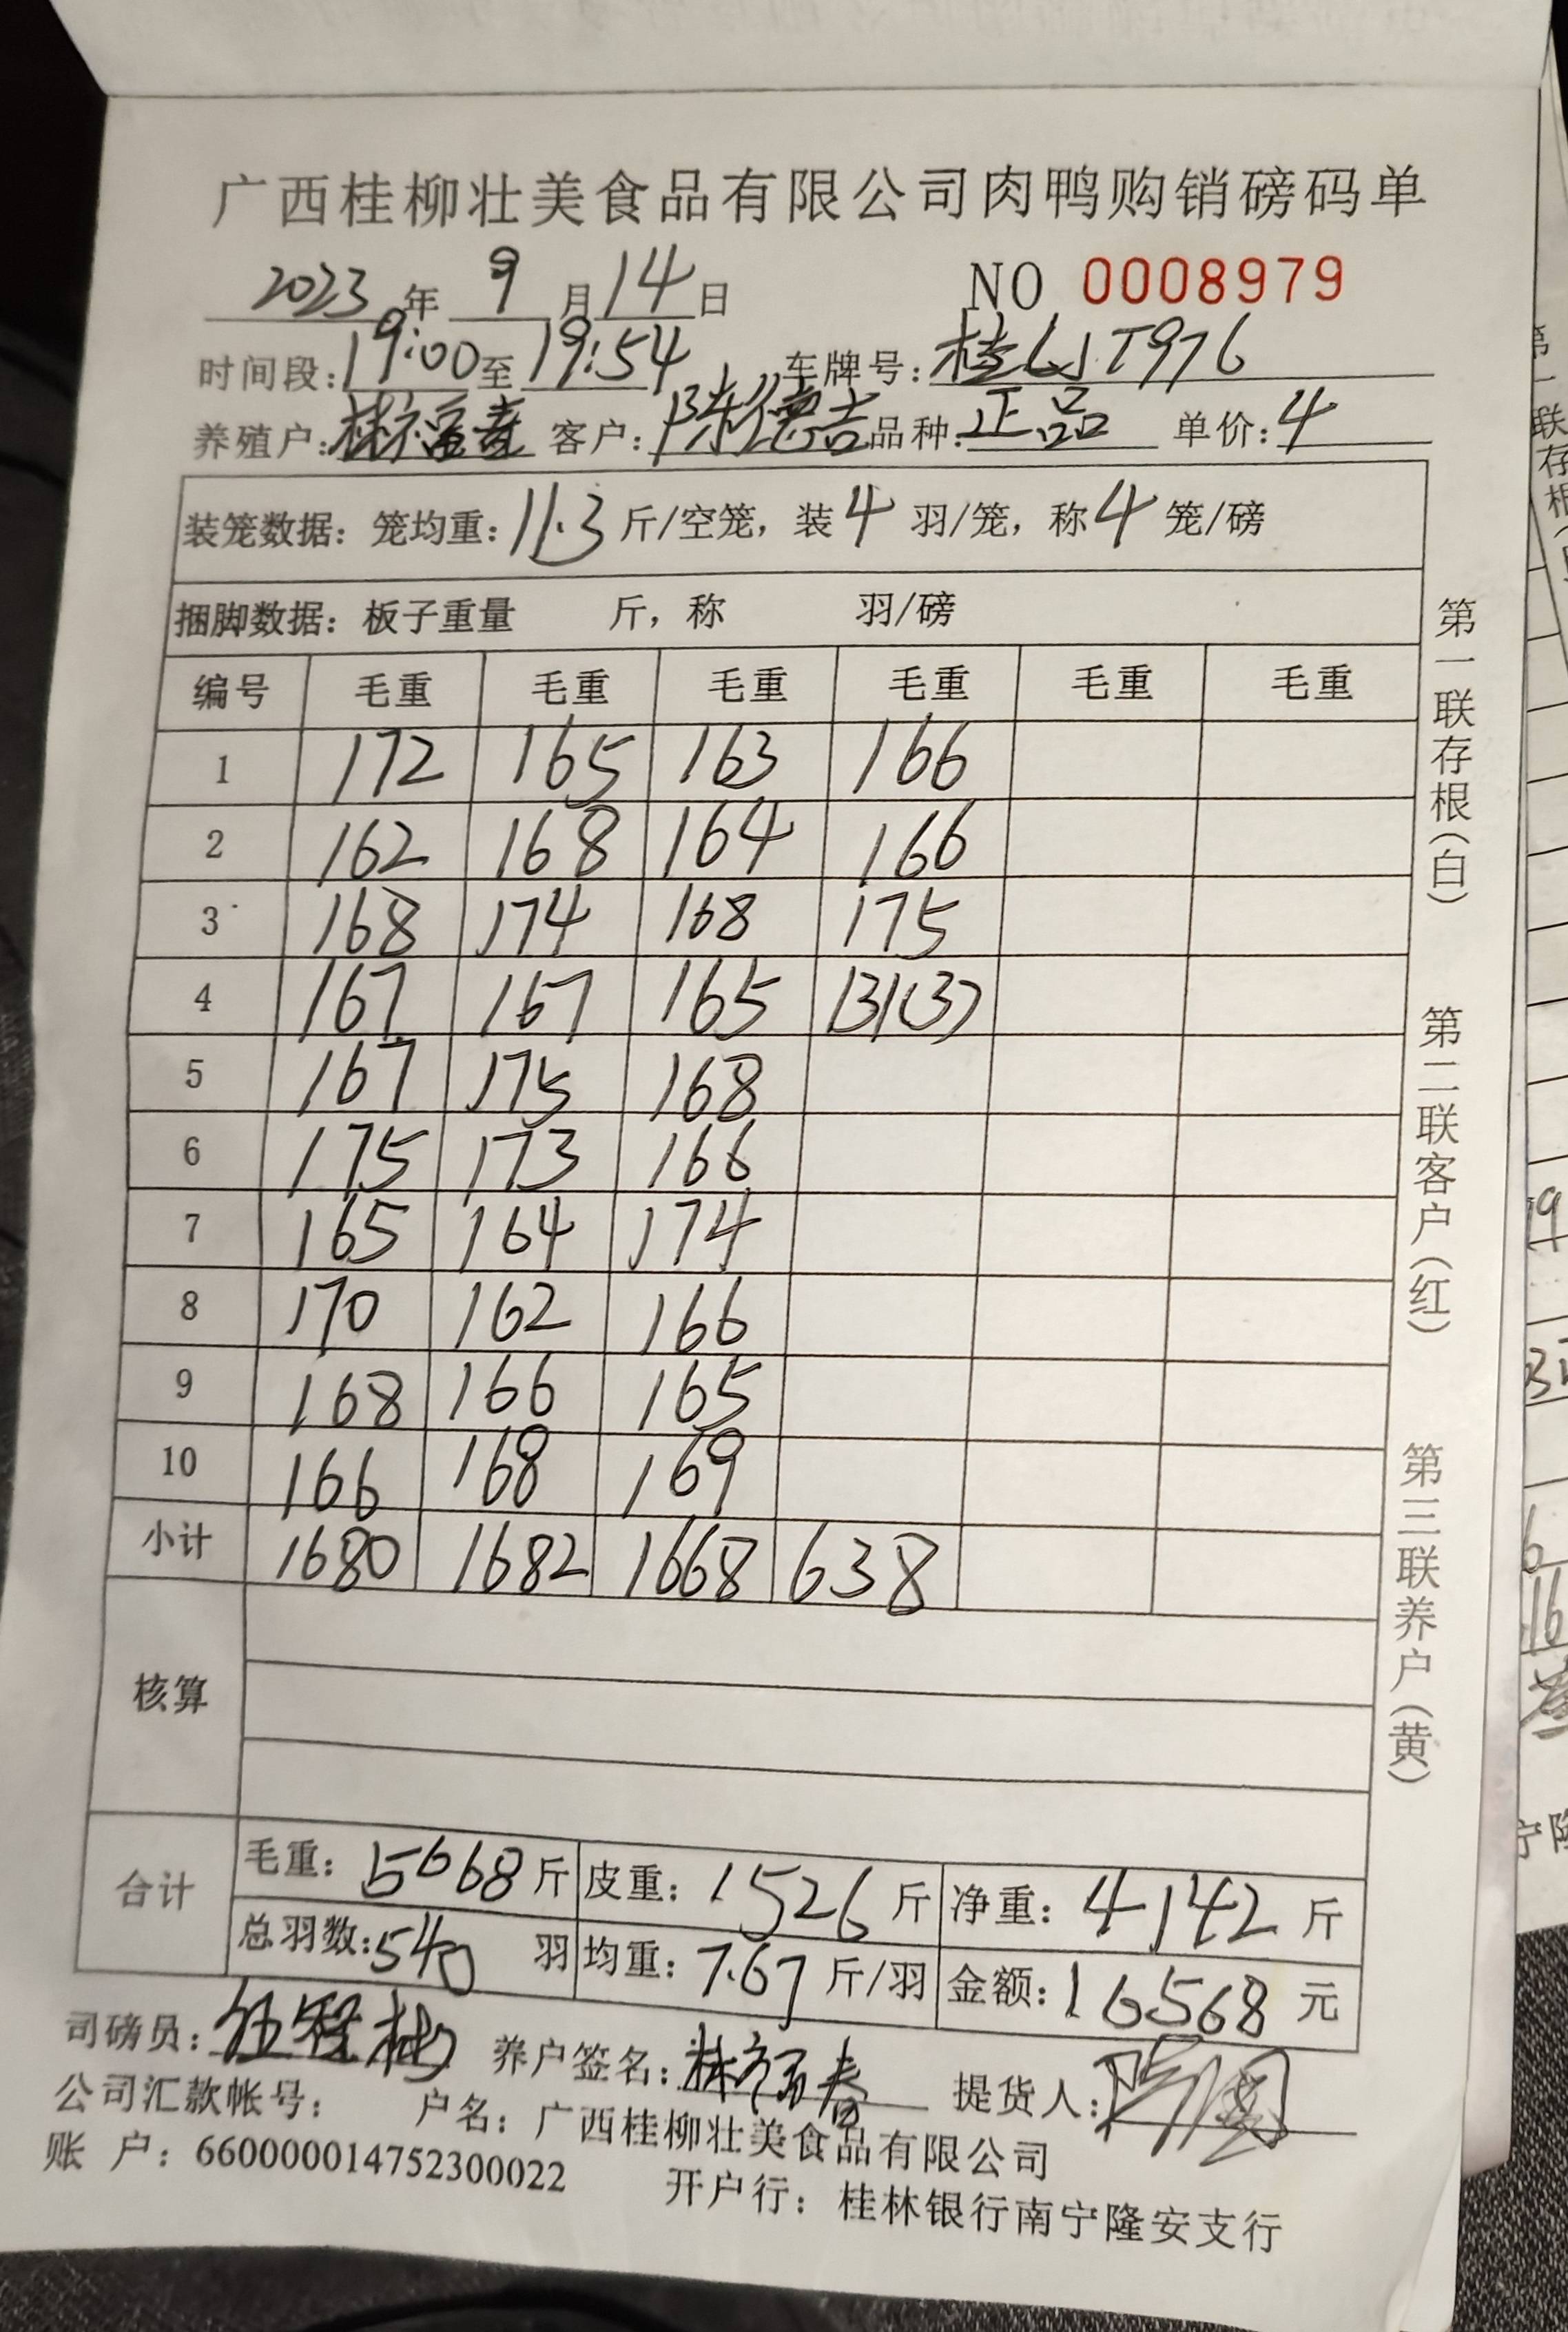 广西桂柳壮美食品有限公司肉鸭购销磅码单
2023年 9月14日 NO 0008979
时间段:19:00至19:54 车牌号:桂LJT976
养殖户:林福春 客户:陈德吉 品种:正品 单价:4
装笼数据：笼均重:11.3斤/空笼，装4羽/笼，称4笼/磅
捆脚数据：板子重量 斤，称 羽/磅
编号 毛重 毛重 毛重 毛重 毛重 毛重
1 172 165 163 166
2 162 168 164 166
3 168 174 168 175
4 167 167 165 131(3)
5 167 175 168
6 175 173 166
7 165 164 174
8 170 162 166
9 168 166 165
10 166 168 169
小计 1680 1682 1668 638
核算
合计 毛重：5668斤 皮重：1526斤 净重：4142斤
总羽数:540羽 均重：7.67斤/羽 金额:16568元
司磅员: 养户签名:林福春 提货人:
公司汇款帐号： 户名：广西桂柳壮美食品有限公司
账 户：660000014752300022 开户行：桂林银行南宁隆安支行
第一联存根(白) 第二联客户(红) 第三联养户(黄)